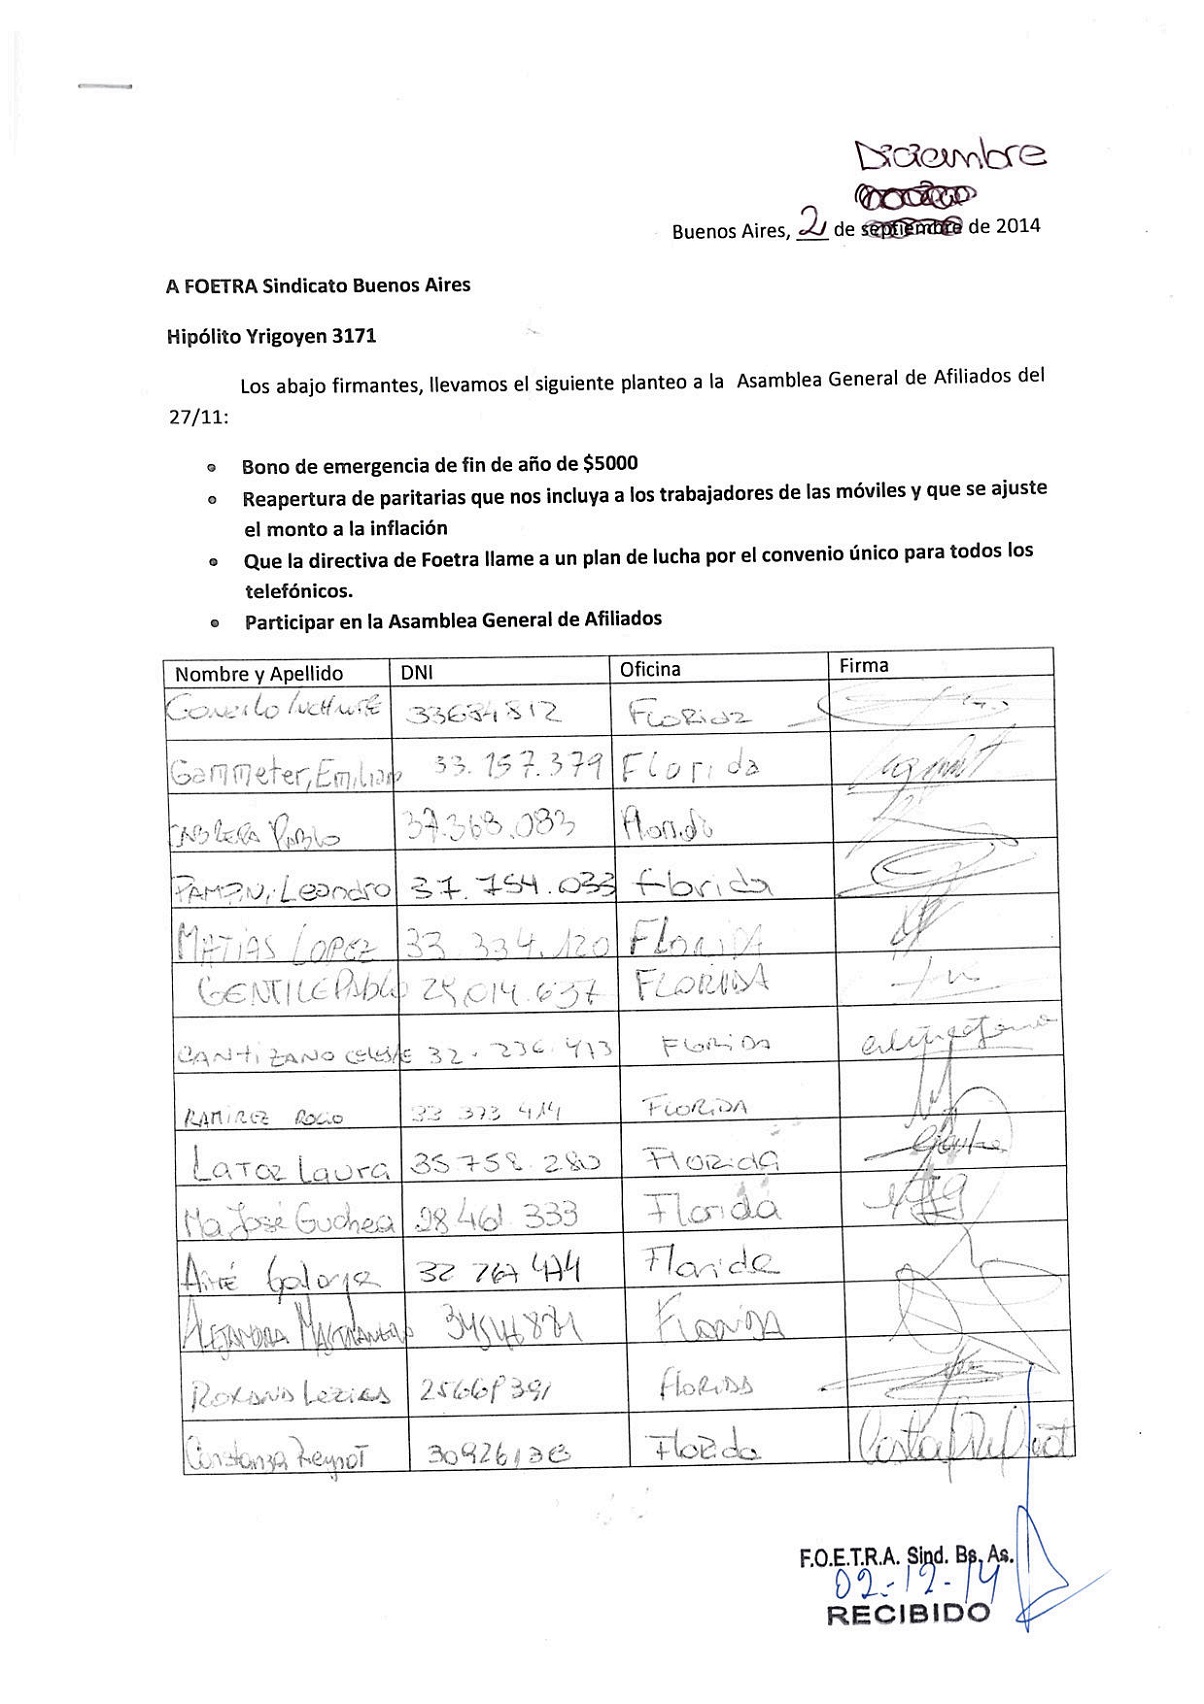 Diciembre
Buenos Aires, 2 de septiembre de 2014
A FOETRA Sindicato Buenos Aires
Hipólito Yrigoyen 3171
Los abajo firmantes, llevamos el siguiente planteo a la Asamblea General de Afiliados del
27/11:
• Bono de emergencia de fin de año de $5000
• Reapertura de paritarias que nos incluya a los trabajadores de las móviles y que se ajuste
el monto a la inflación
• Que la directiva de Foetra llame a un plan de lucha por el convenio único para todos los
telefónicos.
• Participar en la Asamblea General de Afiliados
Nombre y Apellido DNI Oficina Firma
33634812 Florida
Gammeter, Emiliano 33.157.379 Florida
CABRERA PABLO 37.368.083 Florida
Leandro 37.754.033 Florida
MATIAS LOPEZ 33 334.120 FLORIDA
GENTILE PABLO 25,014.637 FLORIDA
CANTIZANO CELESTE 32.236.413 FLORIDA
RAMIREZ ROCIO 33 373 414 FLORIDA
Laura 35 758.280 FLORIDA
Ma José Guchea 28 461 333 Florida
Florida
ALEJANDRA FLORIDA
Roxana FLORIDA
Constanza 30926138 Florida
F.O.E.T.R.A. Sind. Bs. As.
02-12-14
RECIBIDO